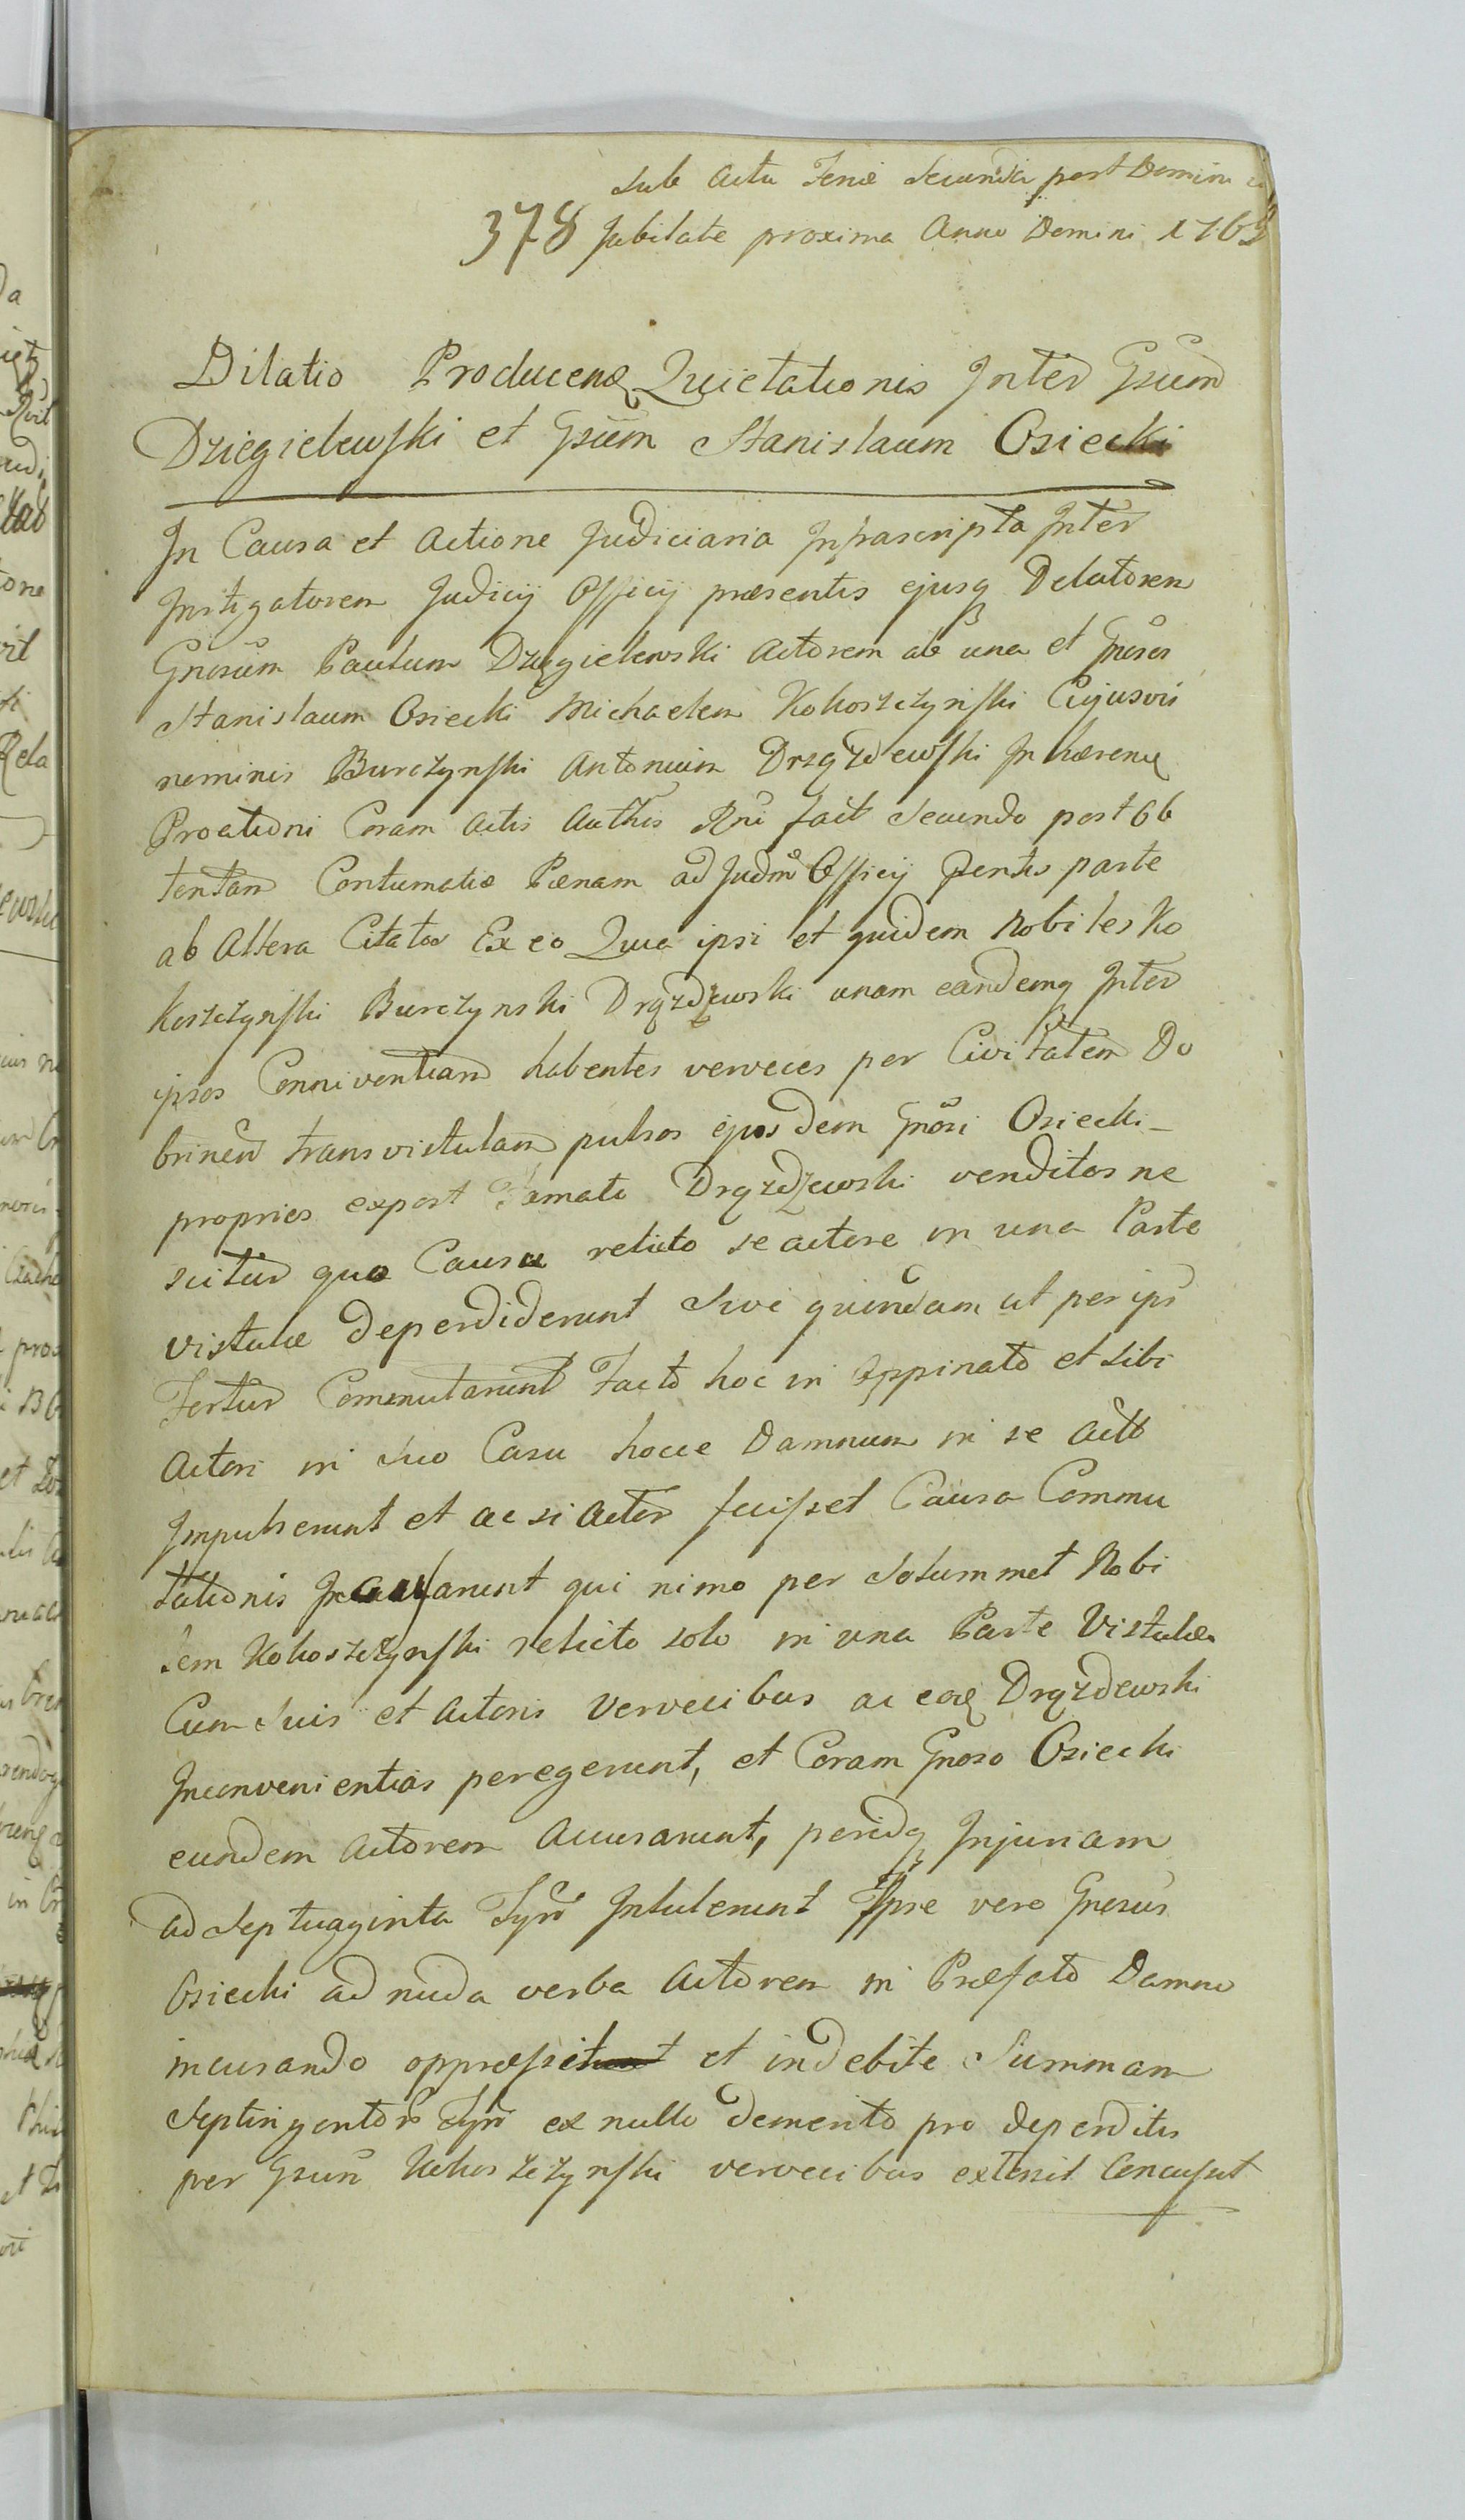 Sub Actu Feriæ Secundæ post Domin
378 Jubilate proxima Anno Domini 176
Dilatio Producenæ Quietationis Inter Gsum
Dziegielewski et Gsum Stanislaum Osiecki
In Causa et Actione Judiciaria Infrascripta Inter
Instigatorem Judicij Officij præsentis ejusq Delatorem
Gnosum Paulum Dzięgielewski Actorem ab una et Gnosos
Stanislaum Osiecki Michaelem Kokoszczynski Cujusvis
neminis Burczynski Antonium Drązdewski Inhærenæ
Proationi Coram Actis Authis Rni fact Secundo post Ob
tentam Contumatiæ Pænam ad Judm Officij Pentis parte
ab Altera Citatos Ex eo Quia ipsi et quidem Nobiles Ko
koszczynski Burczynski Drązdzewski unam eandemq Inter
ipsos Conniventiam habentes verveces per Civitatem Do
brinen transvistulam pulsos ejusdem Gnosi Osiecki
proprios expost Famato Drązdzewski venditos ne
scitur qua Causa relicto se actore in una Parte
vistulæ deperdiderunt Sive quindam ut per ips
Fertur Commutarunt Facto hoc in Oppinato et sibi
Actori in suo Casu hocce Damnum in se Actto
Impulserunt et ac si Actor fuisset Causa Commu
tationis Incusarunt qui nimo per Solummet Nobi
lem Kokoszczynski relicto solo in una Parte Vistulæ
Cum Suis et Actoris Vervecibus ac eoæ Drązdewski
Inconvenientias peregerunt, et Coram Gnoso Osiecki
eundem Actorem Accusarunt, peridq Injuriam
ad Septuaginta Tyn Intulerunt Ipse vero Gnosus
Osiecki ad nuda verba Actorem in Præfato Damno
incusando oppræssit et indebite Summam
Septingentor Tyn ex nullo demerito pro deperditis
per Gsum Kokoszczynski vervecibus extorsit Concussit